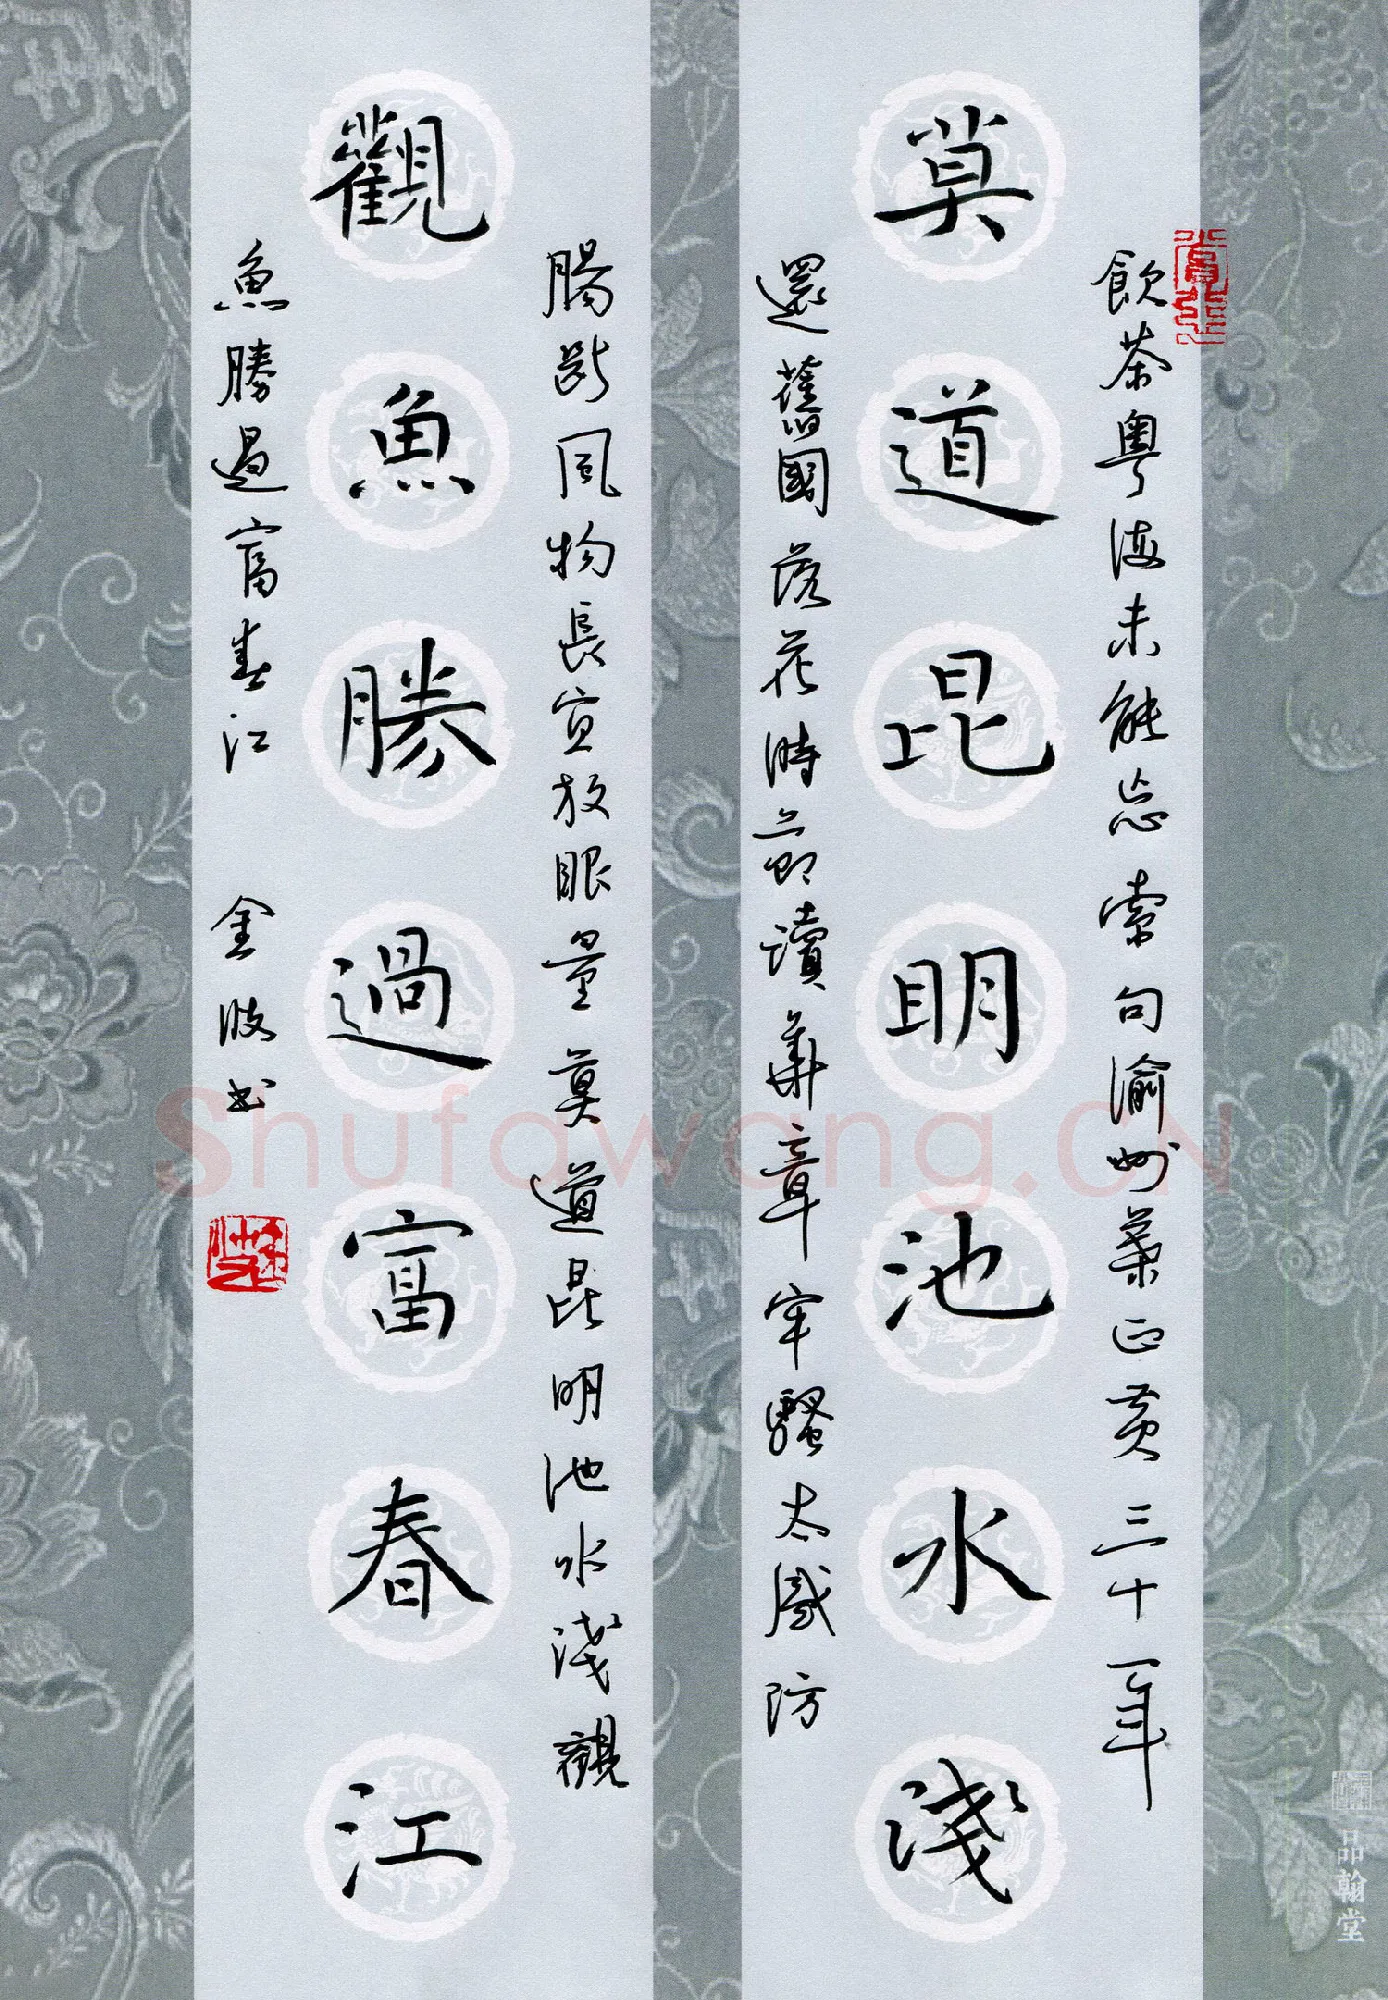 飲茶粵海未能忘索句渝州葉正黃三十一年
莫道昆明池水淺
還舊國落花時節讀華章牢騷太盛防
腸斷風物長宜放眼量莫道昆明池水淺觀
觀魚勝過富春江
魚勝過富春江 金波书
Shufawang.CN
品翰堂